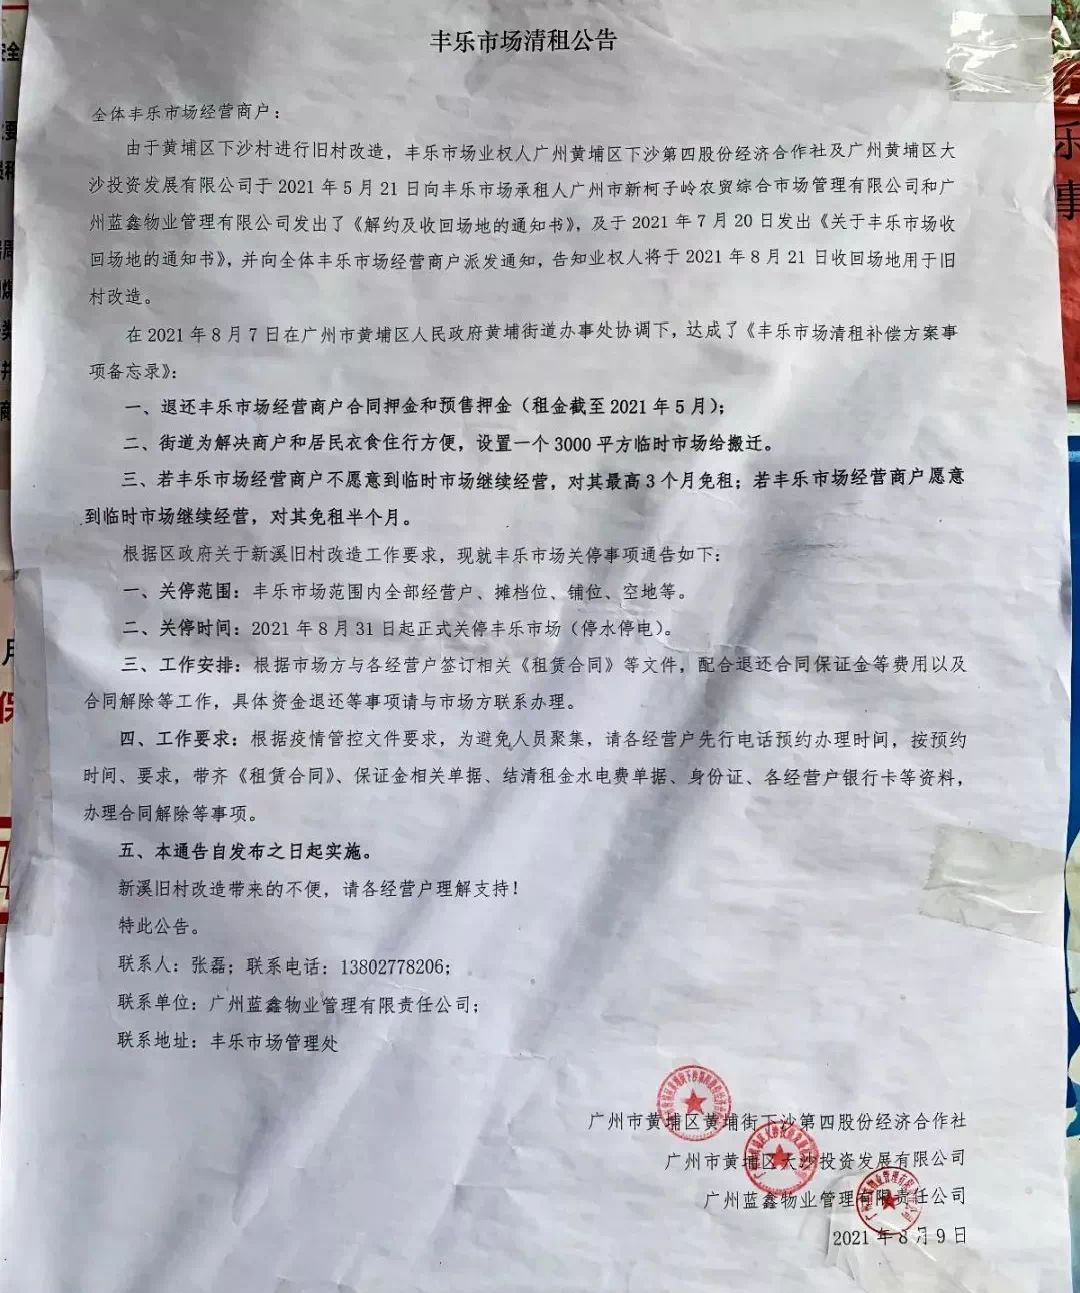 丰乐市场清租公告
全体丰乐市场经营商户：
由于黄埔区下沙村进行旧村改造，丰乐市场业权人广州黄埔区下沙第四股份经济合作社及广州黄埔区大
沙投资发展有限公司于 2021 年 5 月 21 日向丰乐市场承租人广州市新柯子岭农贸综合市场管理有限公司和广
州蓝鑫物业管理有限公司发出了《解约及收回场地的通知书》，及于 2021 年 7 月 20 日发出《关于丰乐市场收
回场地的通知书》，并向全体丰乐市场经营商户派发通知，告知业权人将于 2021 年 8 月 21 日收回场地用于旧
村改造。
在 2021 年 8 月 7 日在广州市黄埔区人民政府黄埔街道办事处协调下，达成了《丰乐市场清租补偿方案事
项备忘录》：
一、退还丰乐市场经营商户合同押金和预售押金（租金截至 2021 年 5 月）；
二、街道为解决商户和居民衣食住行方便，设置一个 3000 平方临时市场给搬迁。
三、若丰乐市场经营商户不愿意到临时市场继续经营，对其最高 3 个月免租；若丰乐市场经营商户愿意
到临时市场继续经营，对其免租半个月。
根据区政府关于新溪旧村改造工作要求，现就丰乐市场关停事项通告如下：
一、关停范围：丰乐市场范围内全部经营户、摊档位、铺位、空地等。
二、关停时间：2021 年 8 月 31 日起正式关停丰乐市场（停水停电）。
三、工作安排：根据市场方与各经营户签订相关《租赁合同》等文件，配合退还合同保证金等费用以及
合同解除等工作，具体资金退还等事项请与市场方联系办理。
四、工作要求：根据疫情管控文件要求，为避免人员聚集，请各经营户先行电话预约办理时间，按预约
时间、要求，带齐《租赁合同》、保证金相关单据、结清租金水电费单据、身份证、各经营户银行卡等资料，
办理合同解除等事项。
五、本通告自发布之日起实施。
新溪旧村改造带来的不便，请各经营户理解支持！
特此公告。
联系人：张磊；联系电话：13802778206；
联系单位：广州蓝鑫物业管理有限责任公司；
联系地址：丰乐市场管理处
广州市黄埔区黄埔街下沙第四股份经济合作社
广州市黄埔区大沙投资发展有限公司
广州蓝鑫物业管理有限责任公司
2021 年 8 月 9 日